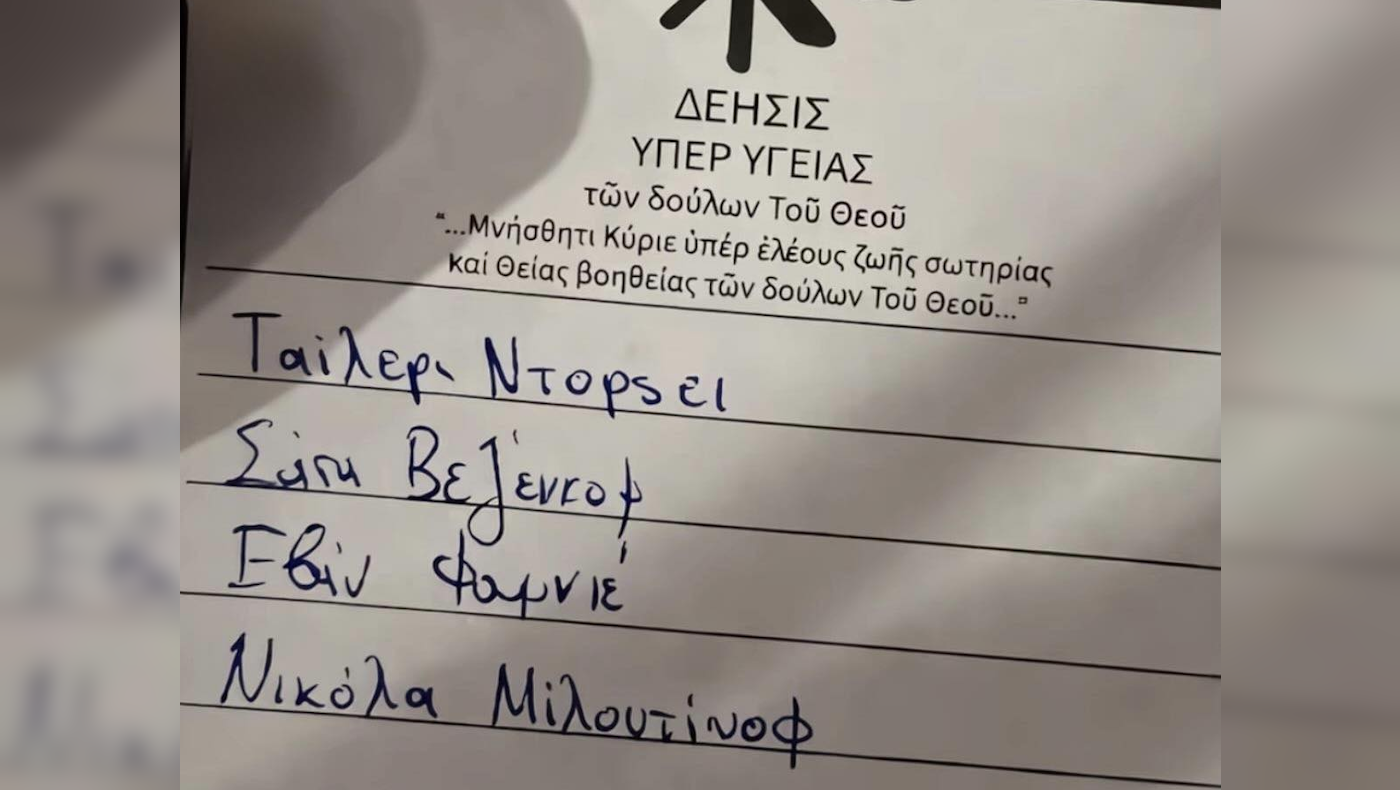 ΔΕΗΣΙΣ
ΥΠΕΡ ΥΓΕΙΑΣ
τῶν δούλων Τοῦ Θεοῦ
“...Μνήσθητι Κύριε ὑπέρ ἐλέους ζωῆς σωτηρίας
καί Θείας βοηθείας τῶν δούλων Τοῦ Θεοῦ...”
Ταϊλερ Ντορσεϊ
Σάσα Βεζένκοφ
Εβάν Φουρνιέ
Νικόλα Μιλουτίνοφ